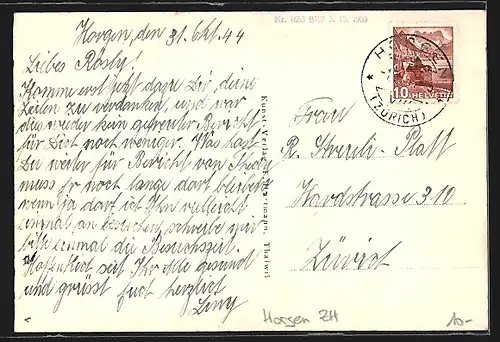 Nr. 1653 BRB 3. 10. 1939
Horgen, den 31. Okt. 44
Liebes Rösly!
Komme erst jetzt dazu Dir, deine
Zeilen zu verdanken, und war
dies wieder kein gefreuter Bericht
für Dich noch weniger. Was hast
Du weiter für Bericht von
muss Er noch lange dort bleiben
wenn ja darf ich Ihn vielleicht
einmal an besuchen, schreibe mir
bitte einmal die Besuchszeit.
Hoffentlich seit Ihr Alle gesund
und grüsst Euch herzlich
Liny
Kunst-Verlag Thalwil
HORGEN
(ZÜRICH)
10 HELVETIA
Frau
R. Streuli-Platt
Hardstrasse 310
Zürich
Horgen ZH
10.-